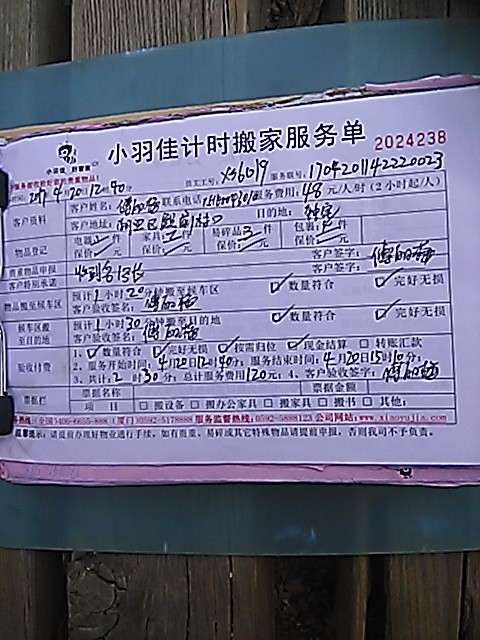 小羽佳 好管家
小羽佳计时搬家服务单
2024238
员工工号: XS6019 服务联号: 1704201142220023
4月20日12时40分
客户资料
客户姓名: 联系电话 服务费用: 48元/人/时(2小时起/人)
客户地址: 目的地:
物品登记
电器 件 家具 件 易碎品 件 包裹 件
保价: 元 保价: 元 保价: 元 保价: 元
贵重物品申报 客户签字:
客户特别承诺 客户签字:
物品搬至候车区
预计1小时20分钟搬至候车区 数量符合 完好无损
客户验收签名:
候车区搬至目的地
预计1小时30分钟搬至目的地 数量符合 完好无损
客户验收签名:
验收付费
1、数量符合 完好无损 按需归位 现金结算 转账汇款
2、服务开始时间: 4月20日12时40分; 服务结束时间: 4月20日15时10分;
3、共计: 2时30分; 总计服务费用120元; 4、客户验收签字:
票据栏
票据名称 票据金额
项目 搬设备 搬办公家具 搬家具 搬书 其他:
服务热线:(全国)400-6655-888 (厦门)0592-5178888 服务监督热线:0592-5888123 公司网站:www.xiaoyujia.com
温馨提示: 请提前办理好物业通行手续, 如有贵重、易碎或其它特殊物品请提前申报, 否则我司不予负责。